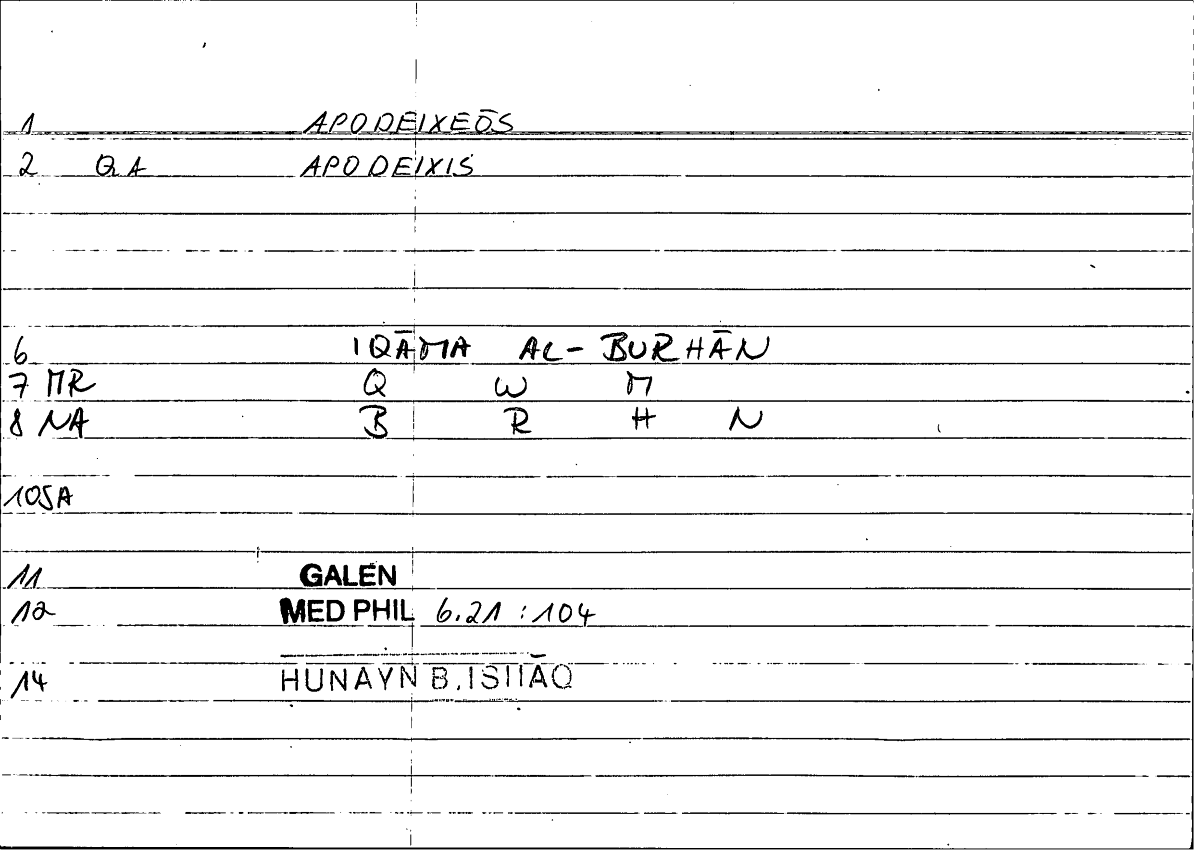 1 APODEIXEŌS
2 QA APODEIXIS
6 IQĀMA AL-BURHĀN
7 MR Q W M
8 NA B R H N
10SA
11 GALEN
12 MED PHIL 6.21 : 104
14 HUNAYN B. ISHĀQ